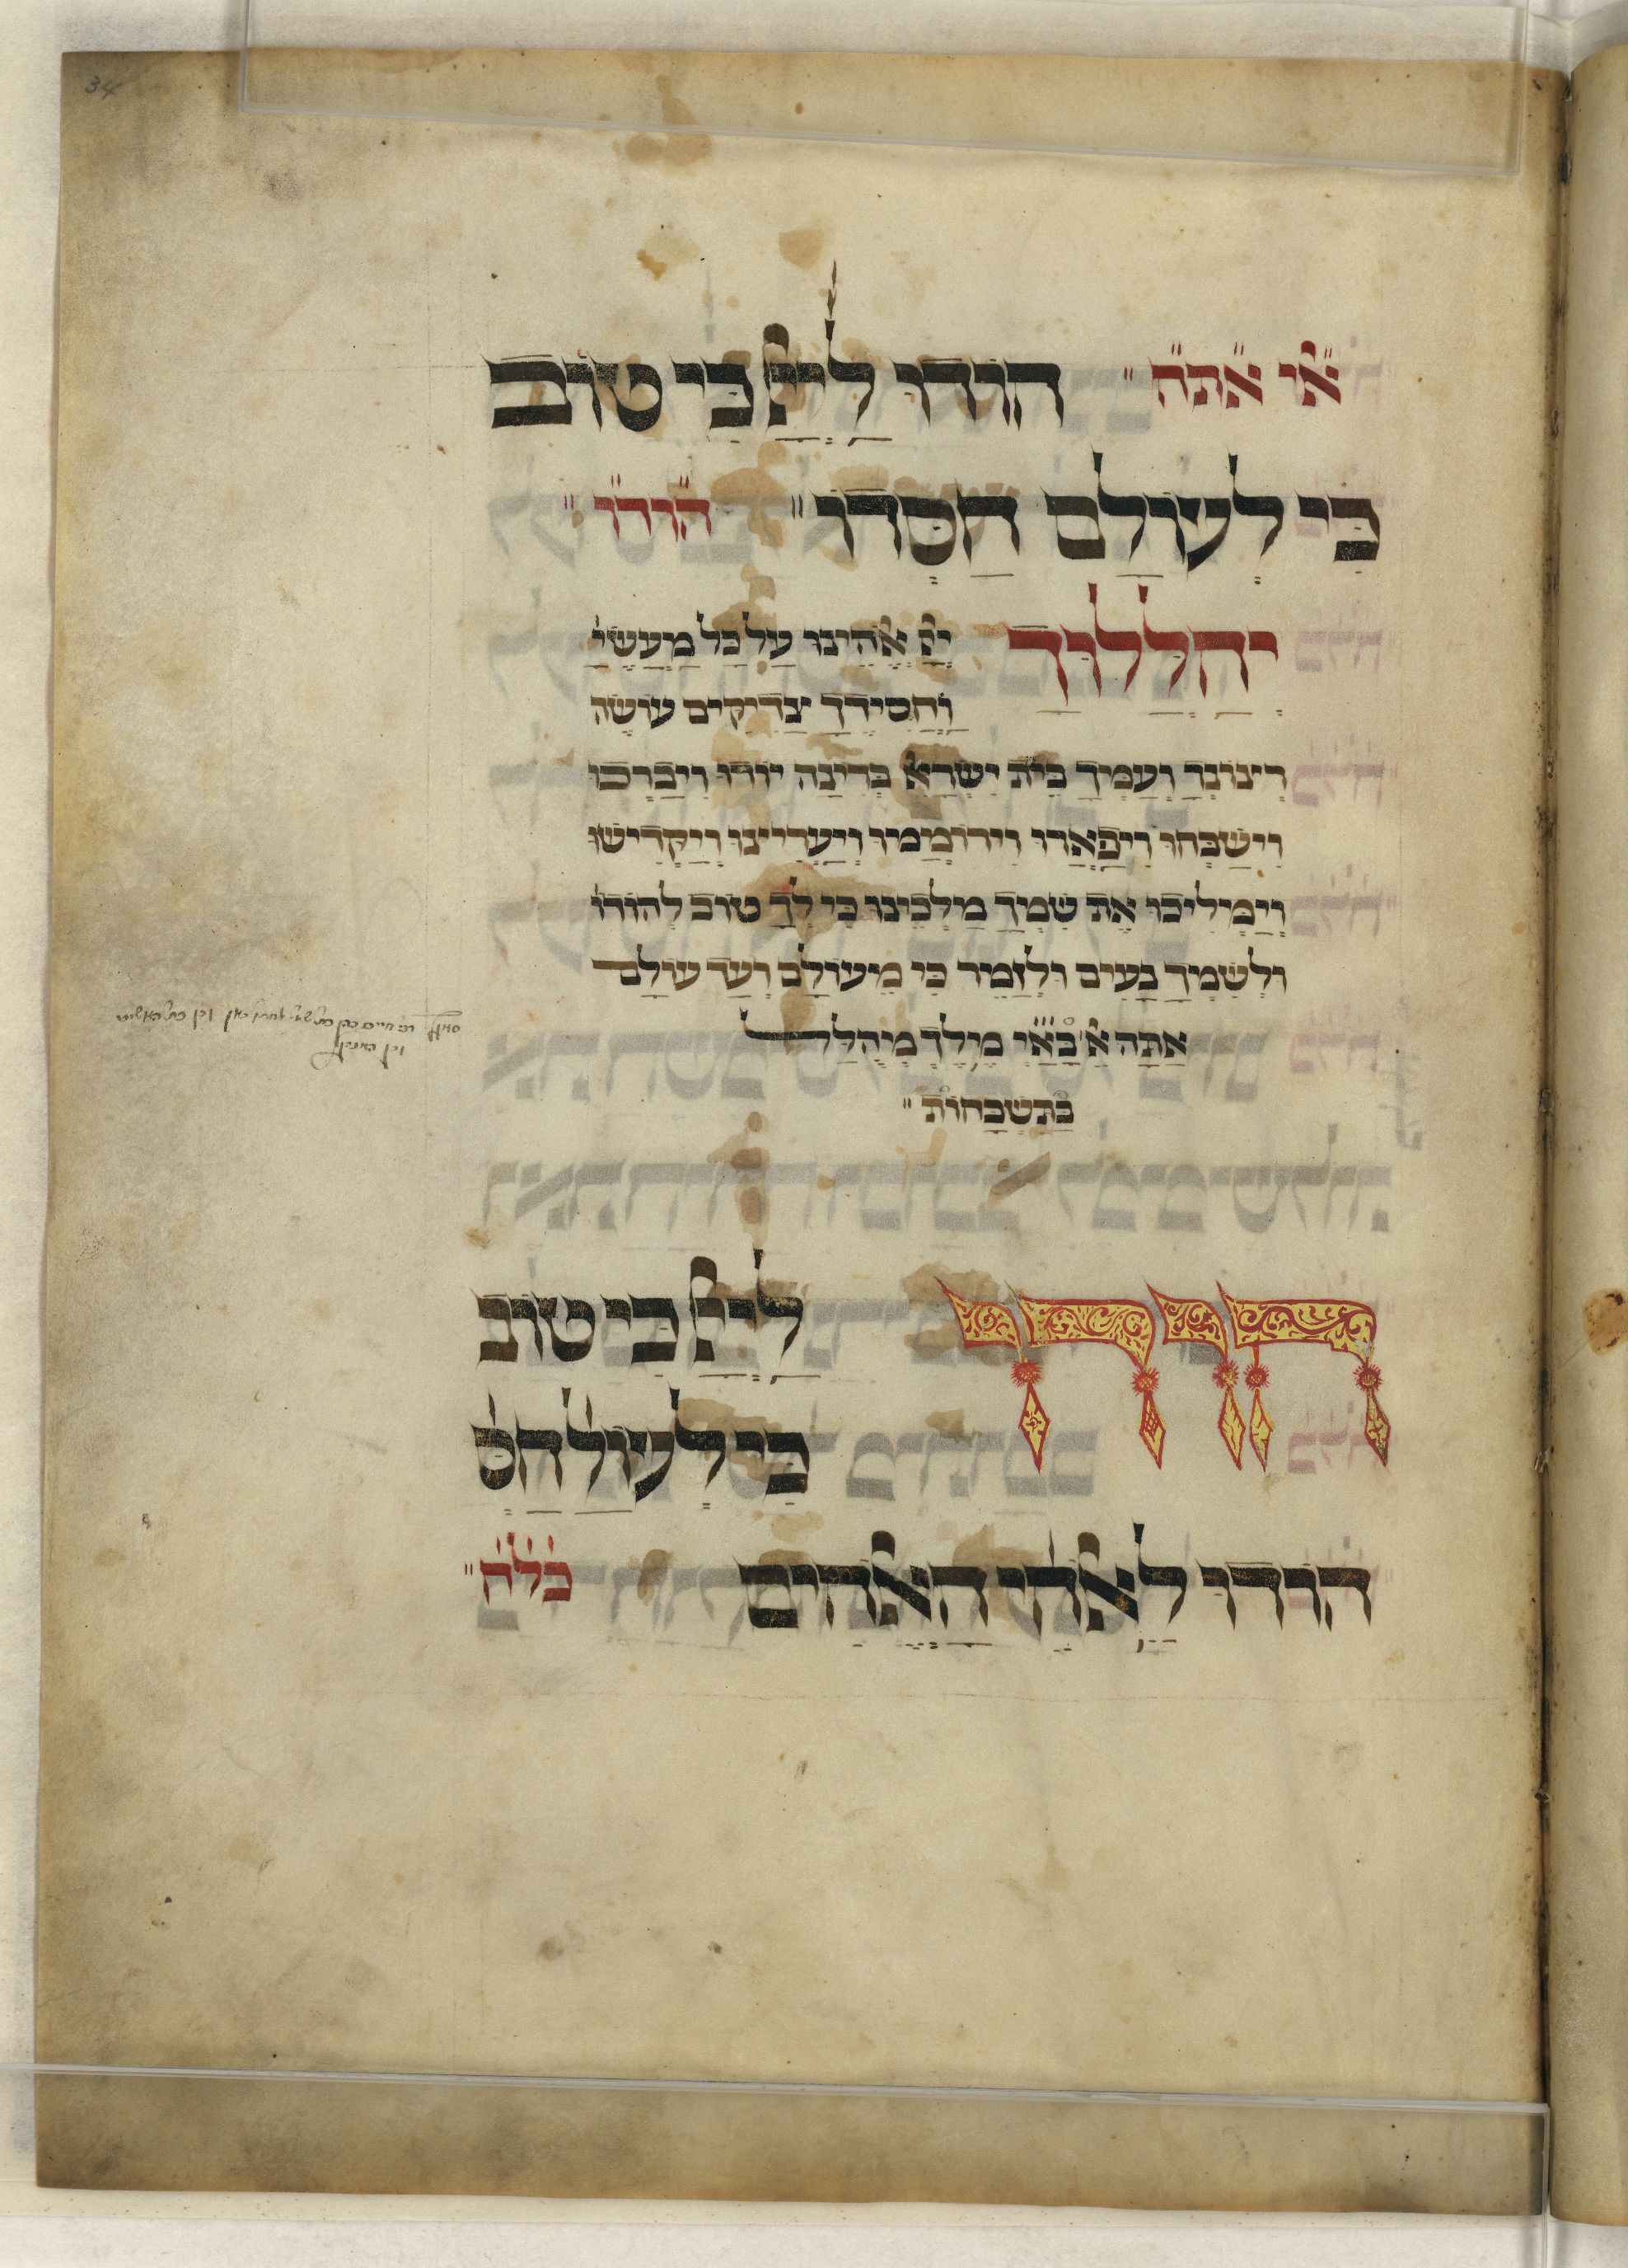 34
אלי אתה הוֹדוּ לַייָ כִּי טוֹב
כִּי לְעוֹלָם חַסְדּוֹ הודו
יְהַלְלוּךָ יְיָ אֱלֹהֵינוּ עַל כָּל מַעֲשֶׂי
וַחֲסִידֶךָ צַדִּיקִים עוֹשֵׂה
רְצוֹנְךָ וְעַמְּךָ בֵּית יִשְׂרָאֵל בְּרִינָה יוֹדוּ וִיבָרְכוּ
וִישַׁבְּחוּ וִיפָאֲרוּ וִירוֹמְמוּ וְיַעֲרִיצוּ וְיַקְדִּישׁוּ
וְיַמְלִיכוּ אֶת שִׁמְךָ מַלְכֵּינוּ כִּי לְךָ טוֹב לְהוֹדוֹ
וּלְשִׁמְךָ נָעִים וּלְזַמֵּר כִּי מֵעוֹלָם וְעַד עוֹלָם
אַתָּה אֵל בָּאַיְ מֶלֶךְ מְהֻלָּל
בַּתִּשְׁבָּחוֹת
הודו לַייָ כִּי טוֹב
כִּי לְעוֹלָ חַסְ
הוֹדוּ לֵאלֹהֵי הָאֱלֹהִים כלח